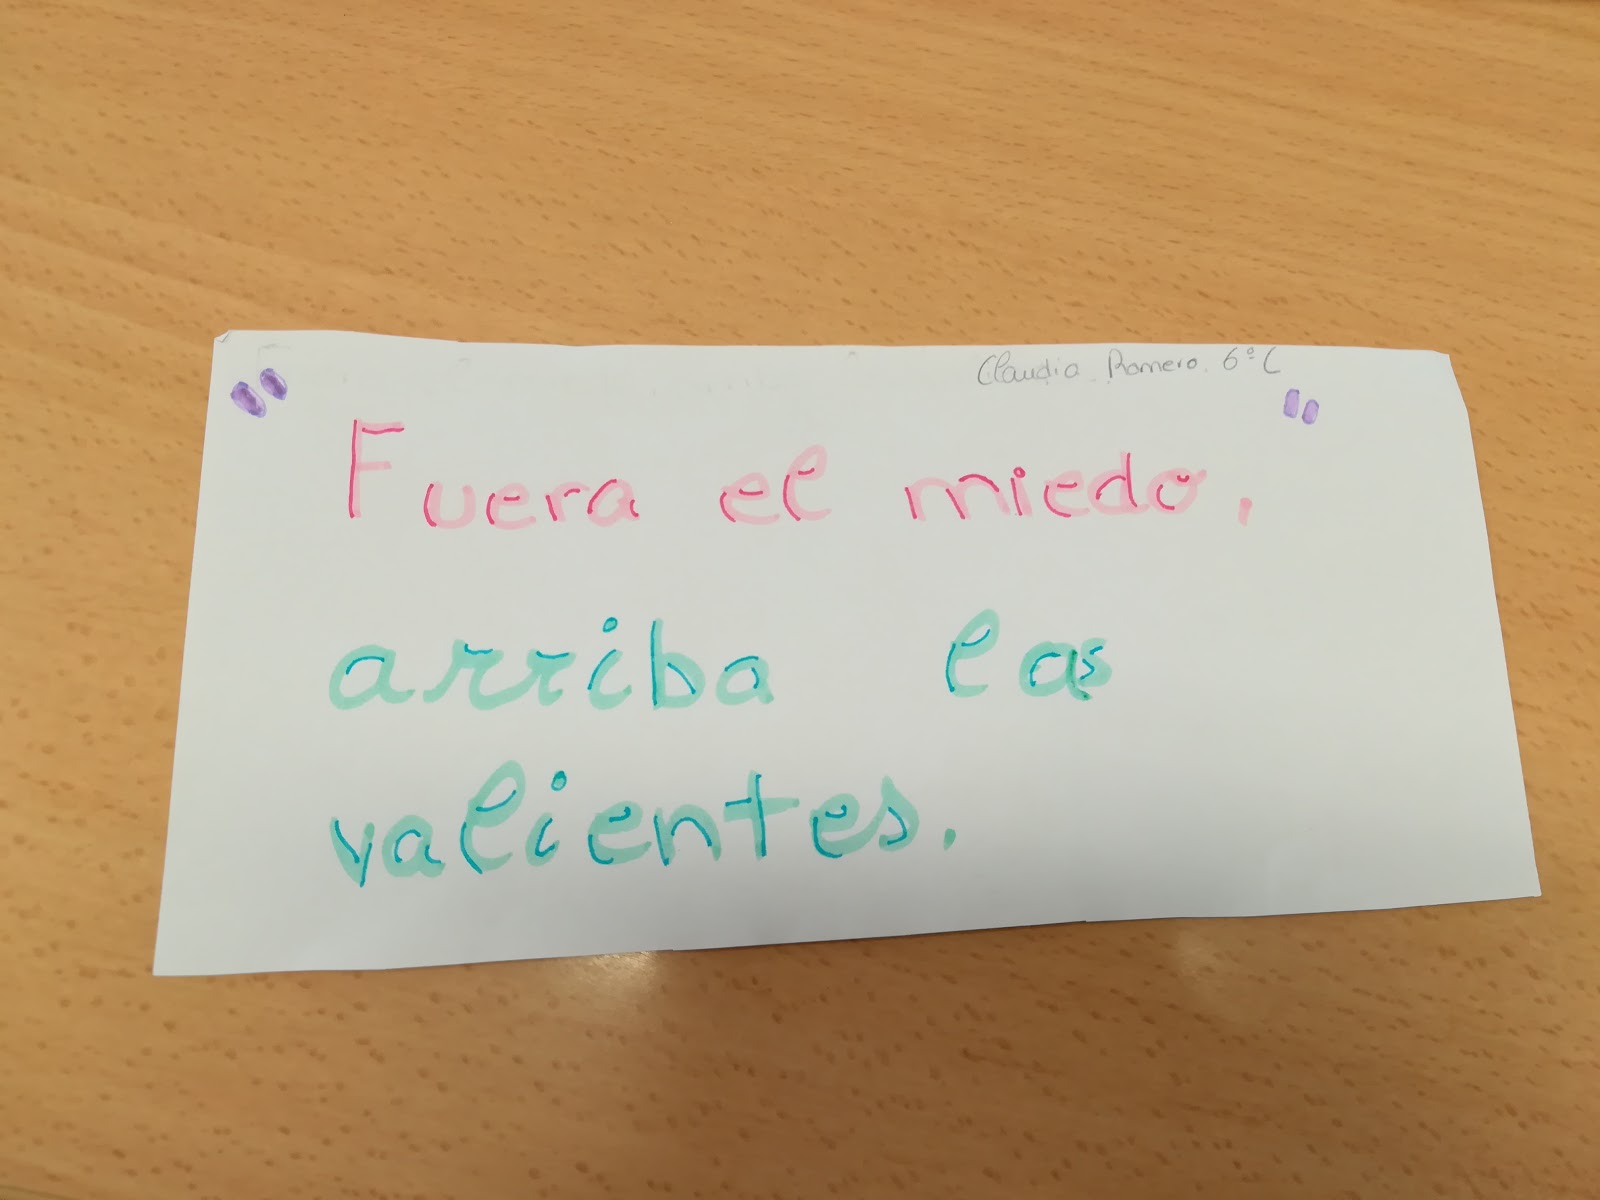 Claudia Romero. 6º C
" Fuera el miedo, "
arriba las
valientes.